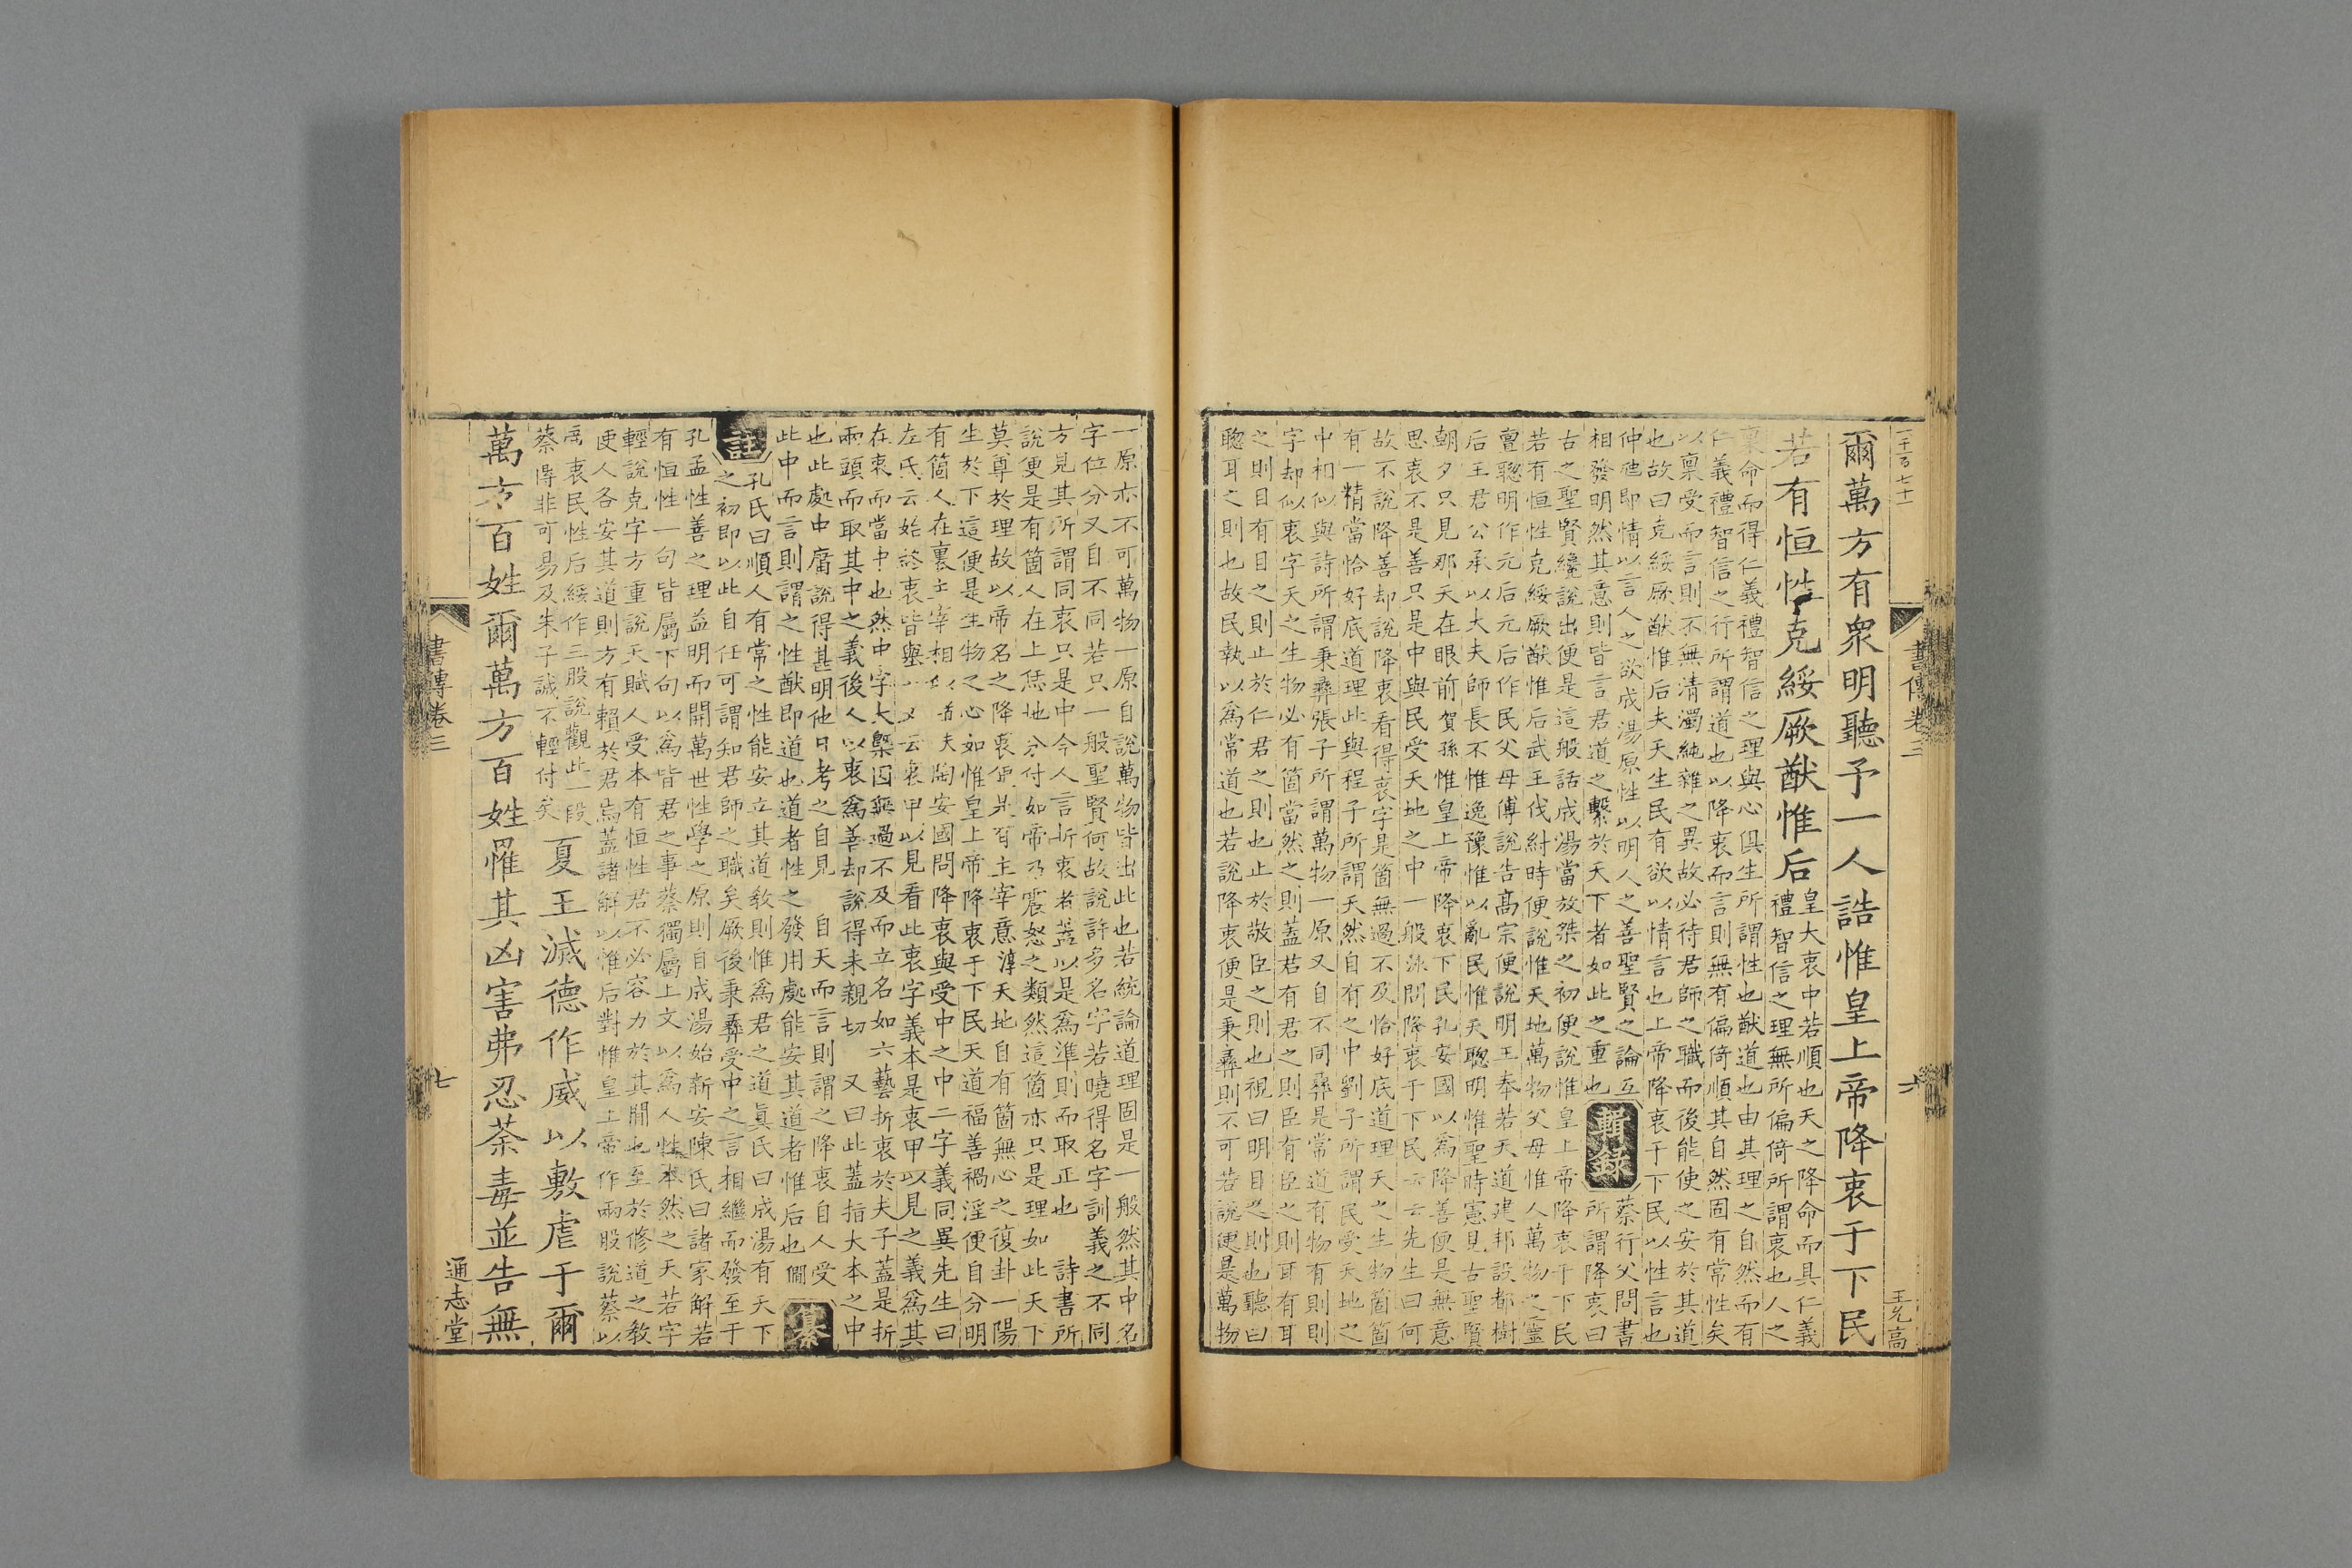 爾萬方有衆明聽予一人誥惟皇上帝降衷于下民
若有恒性克綏厥猷惟后
皇大衷中若順也天之降命而具仁義
禮智信之理無所偏倚所謂衷也人之
稟命而得仁義禮智信之理與心俱生所謂性也猷道也由其理之自然而有
仁義禮智信之行所謂道也以降衷而言則無有偏倚順其自然固有常性矣
以稟受而言則不無清濁純雜之異故必待君師之職而後能使之安於其道
也故曰克綏厥猷惟后夫天生民有欲以情言也上帝降衷于下民以性言也
仲虺即情以言人之欲成湯原性以明人之善聖賢之論互
相發明然其意則皆言君道之繫於天下者如此之重也
輯錄
蔡行父問書
所謂降衷曰
古之聖賢纔說出便是這般話成湯當放桀之初便說惟皇上帝降衷于下民
若有恒性克綏厥猷惟后武王伐紂時便說惟天地萬物父母惟人萬物之靈
亶聰明作元后元后作民父母傅說告髙宗便說明王奉若天道建邦設都樹
后王君公承以大夫師長不惟逸豫惟以亂民惟天聰明惟聖時憲見古聖賢
朝夕只見那天在眼前 賀孫 惟皇上帝降衷下民孔安國以爲降善便是無意
思衷不是善只是中與民受天地之中一般 泳 問降衷于下民云云先生曰何
故不說降善却說降衷看得衷字是箇無過不及恰好底道理天之生物箇箇
有一精當恰好底道理此與程子所謂天然自有之中劉子所謂民受天地之
中相似與詩所謂秉彝張子所謂萬物一原又自不同彝是常道有物有則
字却似衷字天之生物必有箇當然之則蓋若有君之則臣有臣之則耳有耳
之則目有目之則止於仁君之則也止於敬臣之則也視曰明目之則也聽曰
聰耳之則也故民執以爲常道也若說降衷便是秉彝則不可若說便是萬物
一原亦不可萬物一原自說萬物皆出此也若統論道理固是一般然其中名
字位分又自不同若只一般聖賢何故說許多名字若曉得名字訓義之不同
方見其所謂同衷只是中今人言折衷者蓋以是爲準則而取正也 詩書所
說便是有箇人在上恁地分付如帝乃震怒之類然這箇亦只是理如此天下
莫尊於理故以帝名之降衷便是有主宰意 淳 天地自有箇無心之復卦一陽
生於下這便是生物之心如惟皇上帝降衷于下民天道福善禍淫便自分明
有箇人在裏主宰相似 道夫 陶安國問降衷與受中之中二字義同異先生曰
左氏云始終衷皆舉一又云衷甲以見看此衷字義本是衷甲以見之義爲其
在衷而當中也然中字大槩因無過不及而立名如六藝折衷於夫子蓋是折
兩頭而取其中之義後人以衷爲善却說得未親切 又曰此蓋指大本之中
也此處中庸說得甚明他日考之自見 自天而言則謂之降衷自人受
此中而言則謂之性猷即道也道者性之發用處能安其道者惟后也 僩
纂註
孔氏曰順人有常之性能安立其道教則惟爲君之道眞氏曰成湯有天下
之初即以此自任可謂知君師之職矣厥後秉彝受中之言相繼而發至于
孔孟性善之理益明而開萬世性學之原則自成湯始新安陳氏曰諸家解若
有恒性一句皆屬下句以爲皆君之事蔡獨屬上文以爲人性本然之天若字
輕說克字方重說天賦人受本有恒性君不必容力於其間也至於修道之教
使人各安其道則方有賴於君焉蓋諸解以惟后對惟皇上帝作兩股說蔡以
帝衷民性后綏作三股說觀此一段
蔡傳非可易及朱子誠不輕付矣
夏王滅德作威以敷虐于爾
萬方百姓爾萬方百姓罹其凶害弗忍荼毒並告無
書傳卷三
六
王允高
書傳卷三
七
通志堂